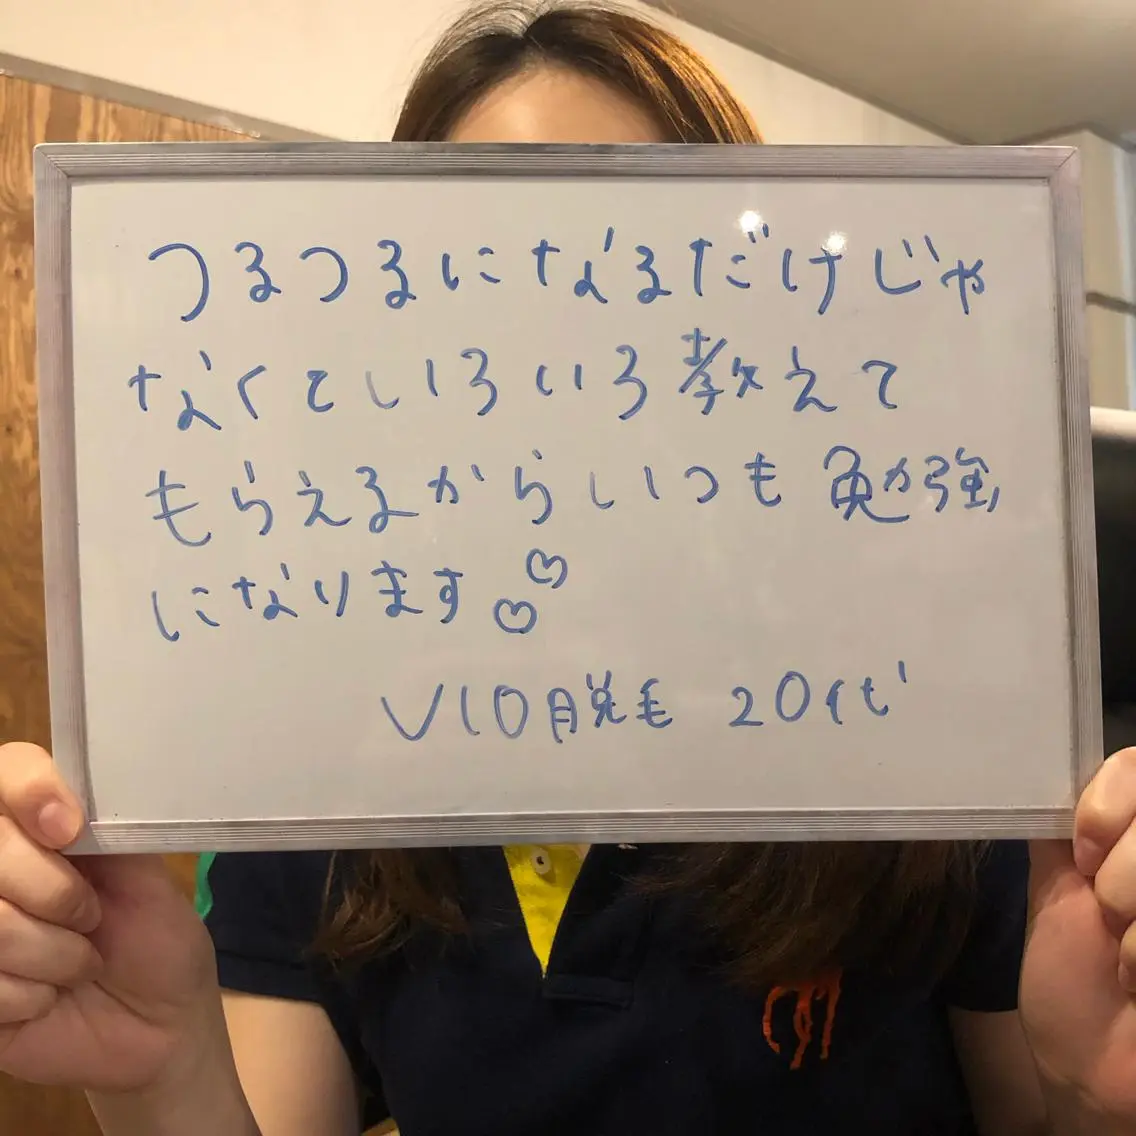 つるつるになるだけじゃ
なくていろいろ教えて
もらえるからいつも勉強
になります♡♡
VIO脱毛 20代